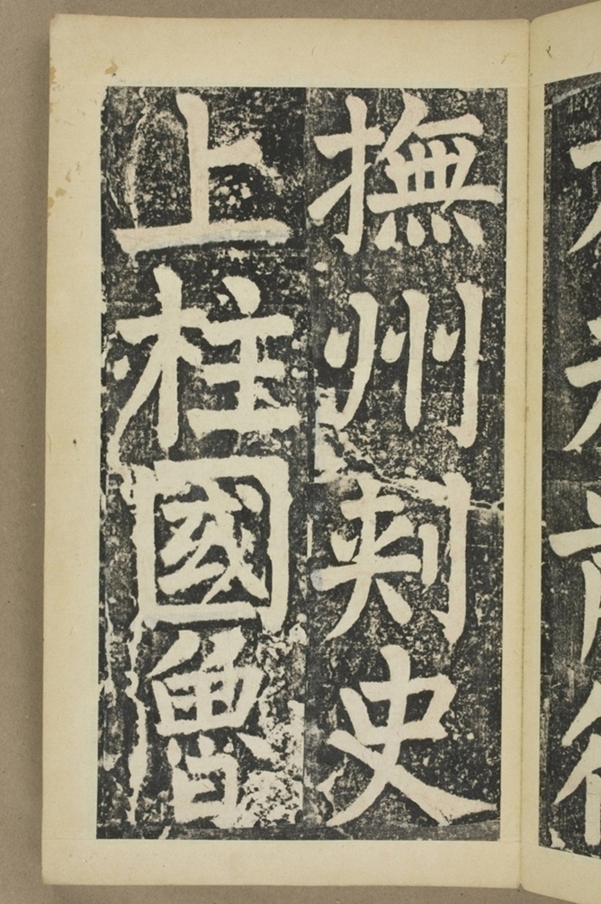 撫州刺史
上柱國魯